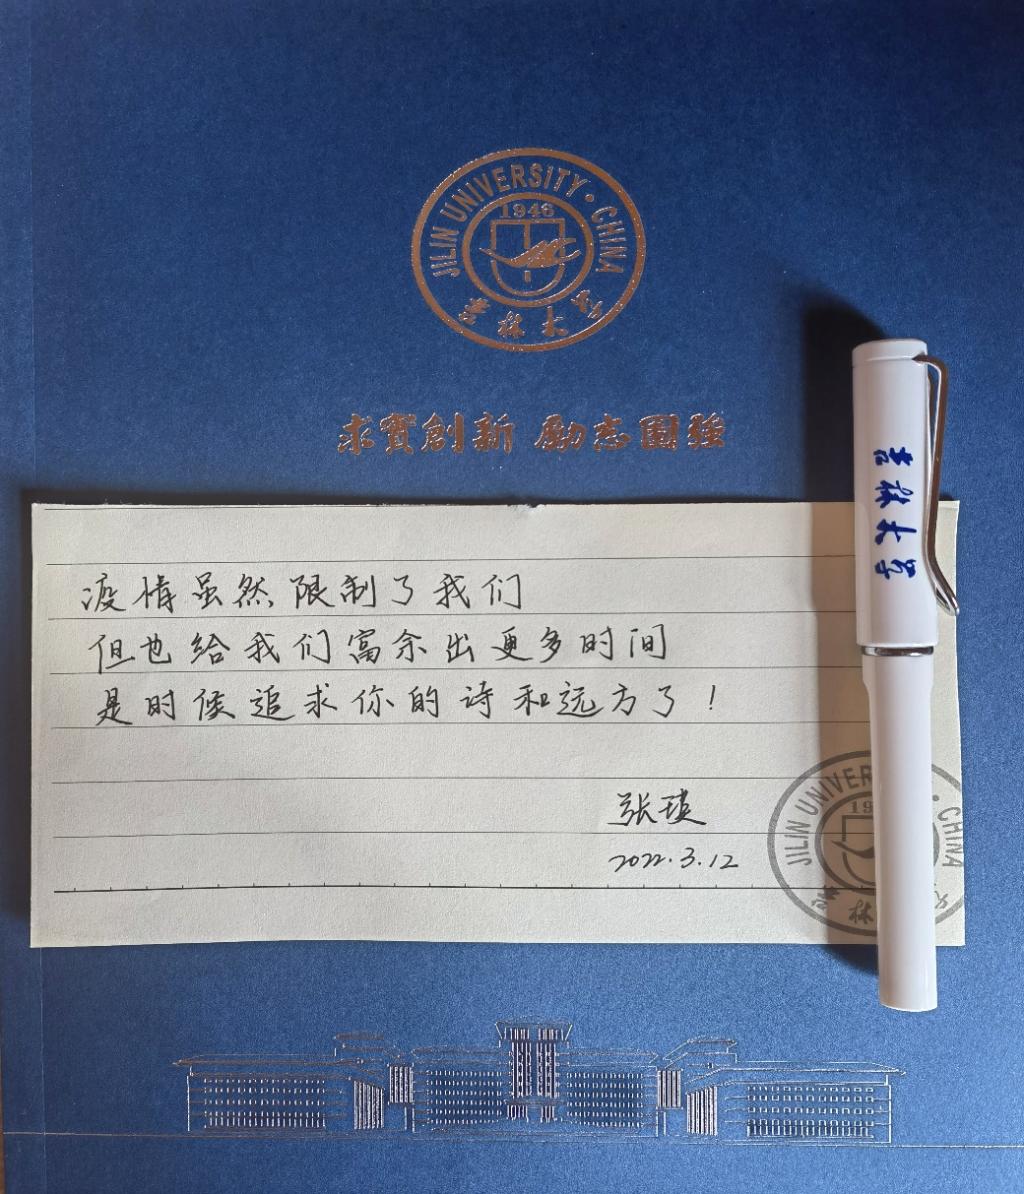 JILIN UNIVERSITY · CHINA
1946
吉林大学
求實創新 勵志圖強
吉林大学
疫情虽然限制了我们
但也给我们富余出更多时间
是时候追求你的诗和远方了！
张瑛
2022.3.12
JILIN UNIVER
CHINA
19
林